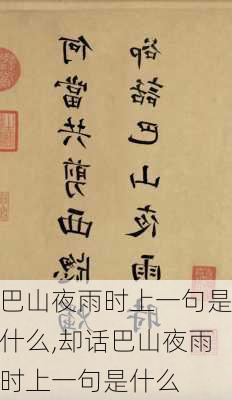 何當共剪西窗燭
卻話巴山夜雨時
巴山夜雨时上一句是
什么,却话巴山夜雨
时上一句是什么